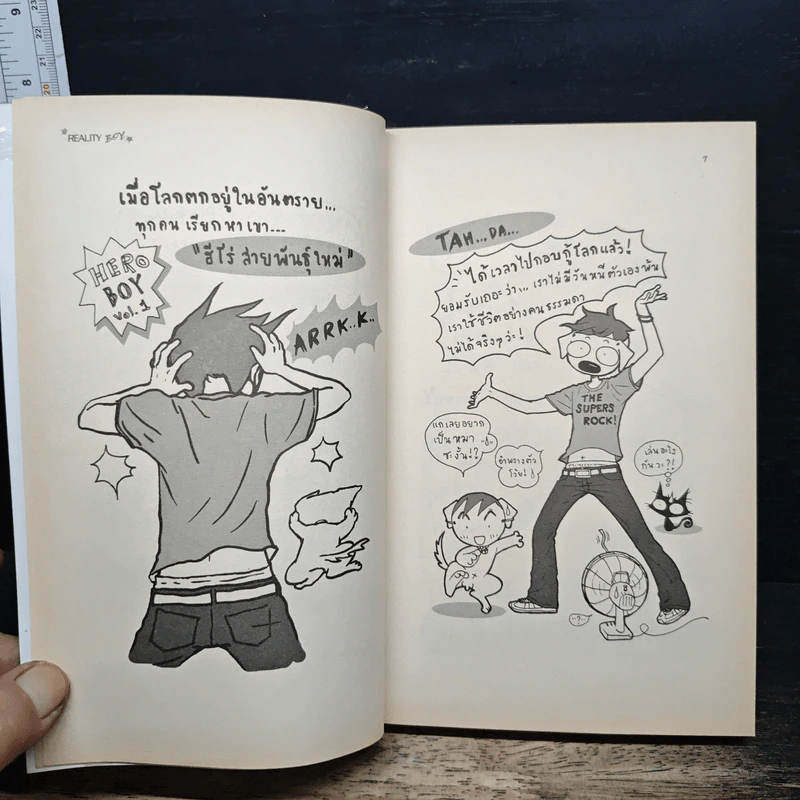 REALITY BOY
เมื่อโลกตกอยู่ในอันตราย...
ทุกคนเรียกหาเขา...
"ฮีโร่ สายพันธุ์ใหม่"
HERO
BOY
Vol.1
ARRK..K..
7
TAH...DA...
ได้เวลาไปกอบกู้โลกแล้ว!
ยอมรับเถอะว่า... เราไม่มีวันหนีตัวเองพ้น
เราใช้ชีวิตอย่างคนธรรมดา
ไม่ได้จริงๆว่ะ!
THE
SUPERS
ROCK!
แกเลยอยาก
เป็นหมา
ซะงั้น!?
อำพรางตัว
โว้ย!
เล่นอะไร
กันวะ?!
9
8
23
22
21
20